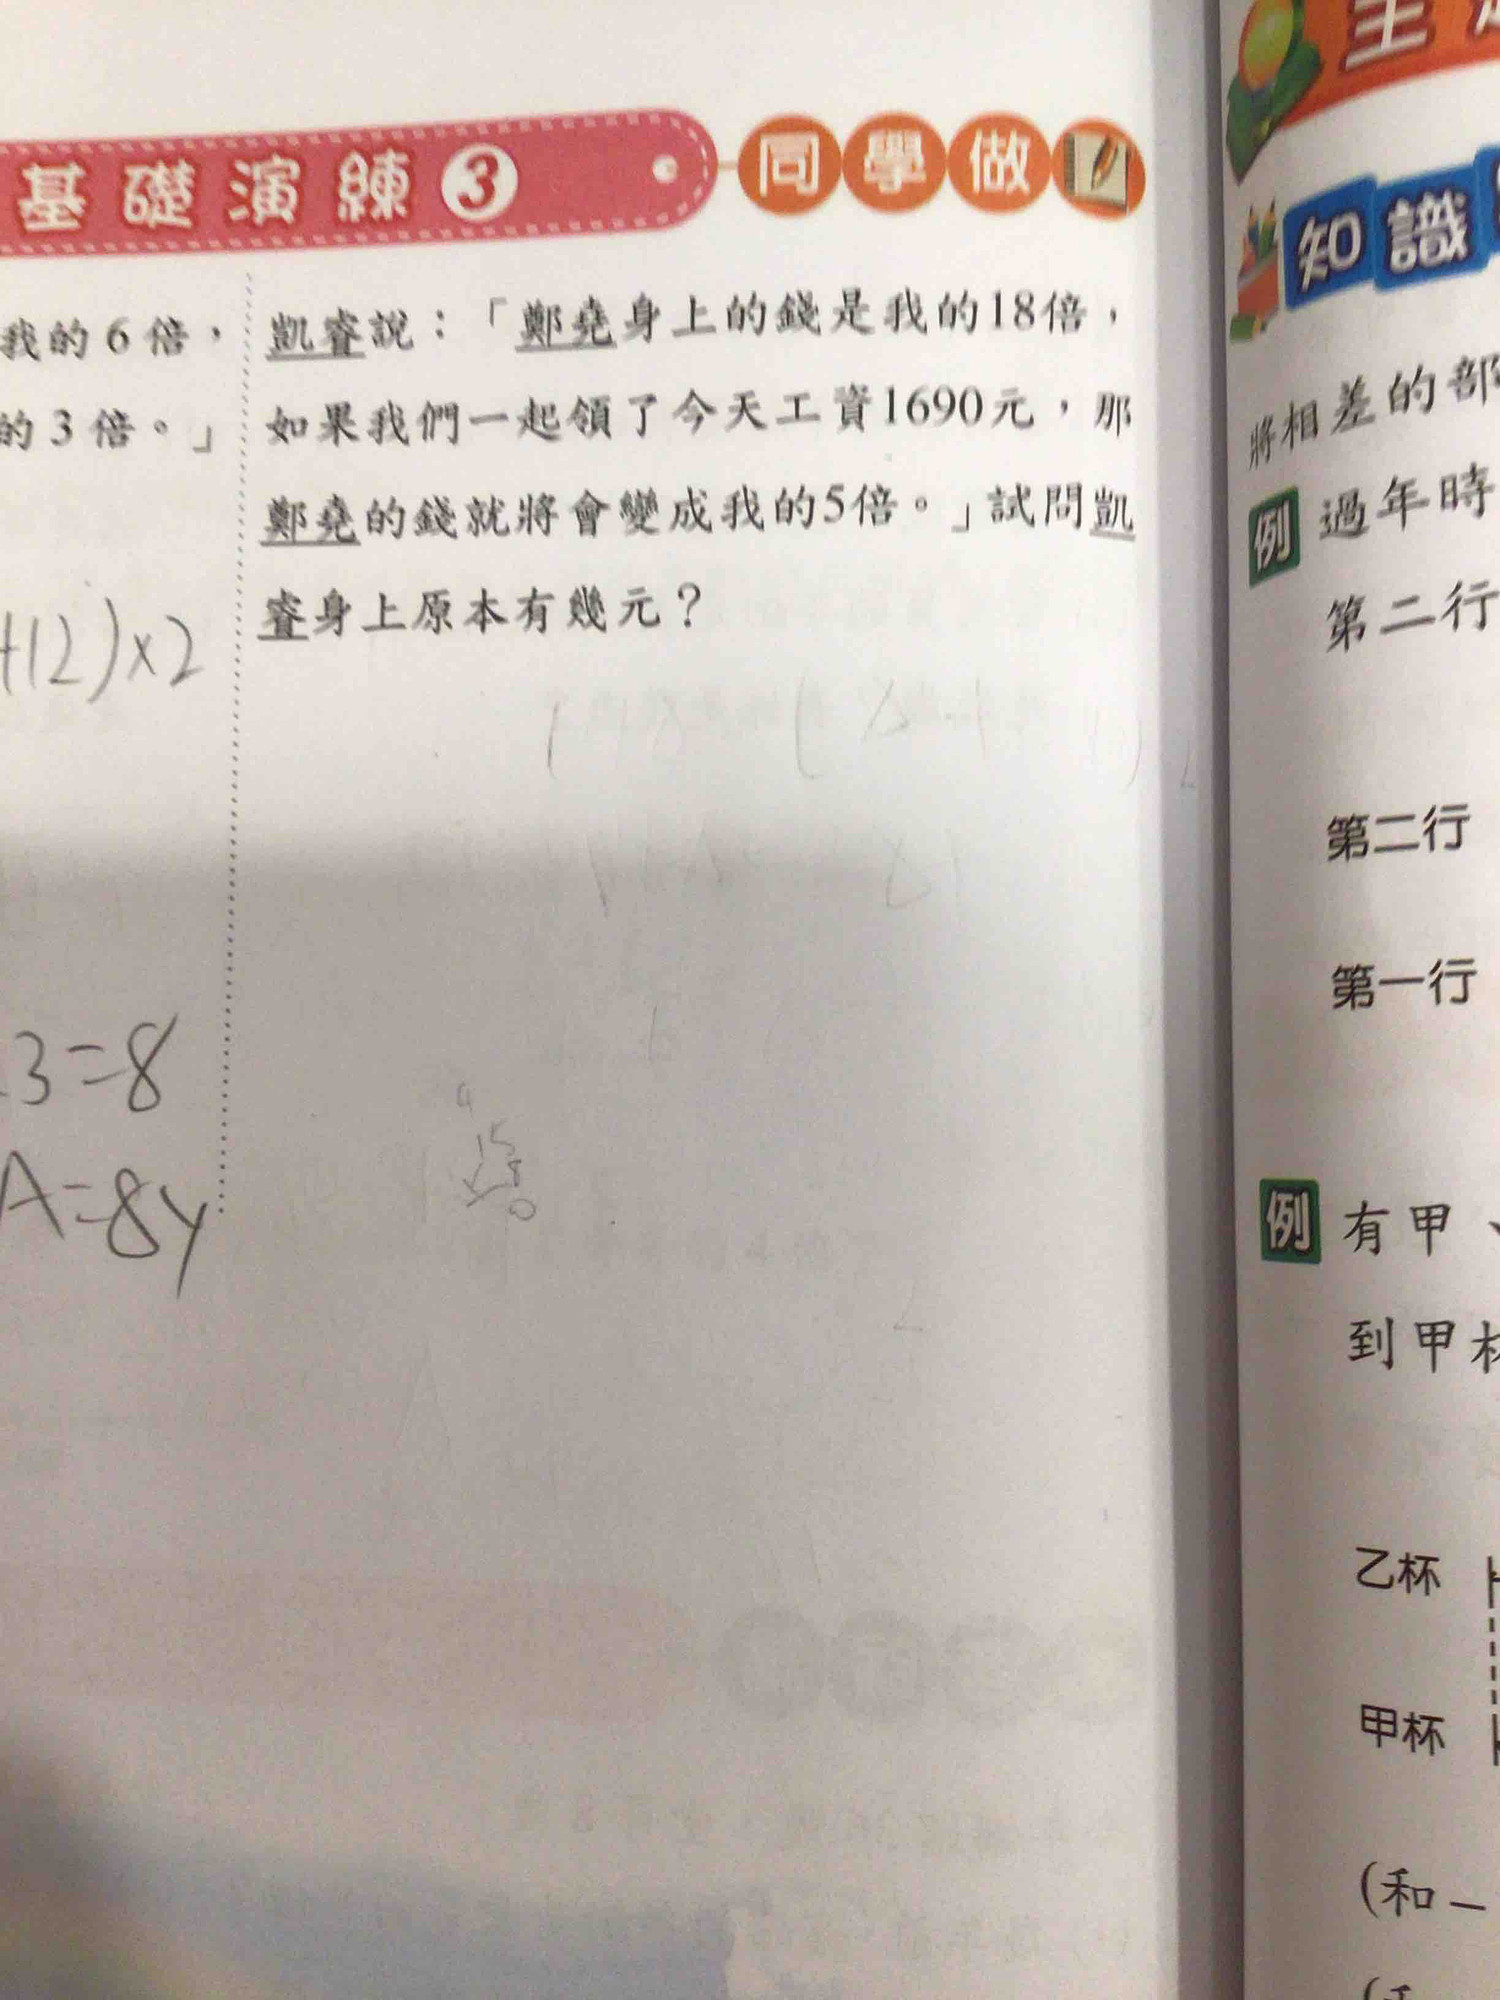 基礎演練3 同學做
我的6倍，
的3倍。」
+12)×2
3=8
A=8y
凱睿說：「鄭堯身上的錢是我的18倍，
如果我們一起領了今天工資1690元，那
鄭堯的錢就將會變成我的5倍。」試問凱
睿身上原本有幾元？
知識
將相差的部
例 過年時
第二行
第二行
第一行
例 有甲、
到甲杯
乙杯
甲杯
(和－